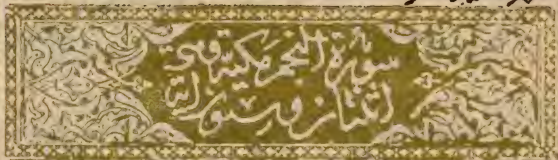 سورة النجم مكية وهي
اثنتان وستون اية